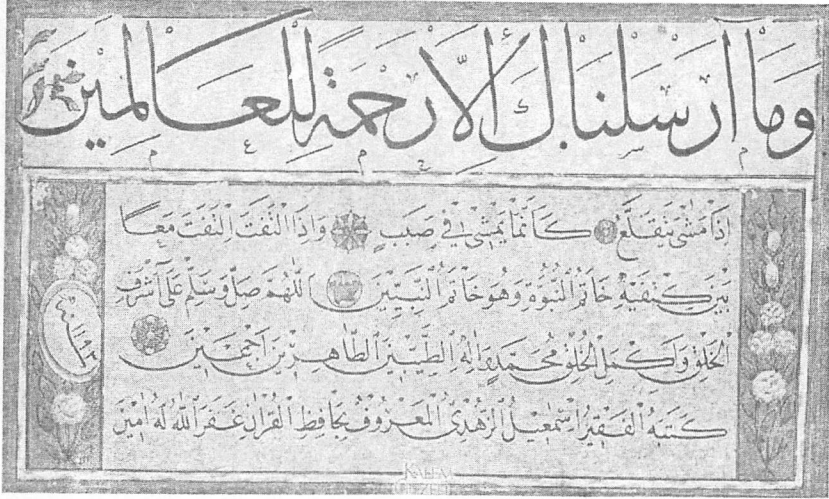 وَمَا أَرْسَلْنَاكَ إِلَّا رَحْمَةً لِلْعَالَمِينَ
اِذَا مَشٰى يَتَقَلَّعُ كَاَنَّمَا يَمْشِى فِى صَبَبٍ وَاِذَا الْتَفَتَ الْتَفَتَ مَعًا
بَيْنَ كَتِفَيْهِ خَاتَمُ النُّبُوَّةِ وَهُوَ خَاتَمُ النَّبِيّٖنَ اَللّٰهُمَّ صَلِّ وَسَلِّمْ عَلٰى اَشْرَفِ
الْخَلْقِ وَاَكْمَلِ الْخُلُقِ مُحَمَّدٍ وَاٰلِهِ الطَّيِّبِينَ الطَّاهِرِينَ اَجْمَعِينَ
كَتَبَهُ الْفَقِيرُ اِسْمٰعِيلُ الزُّهْدِىُّ الْمَعْرُوفُ بِحَافِظِ الْقُرْاٰنِ غَفَرَ اللّٰهُ لَهُ اٰمِينَ